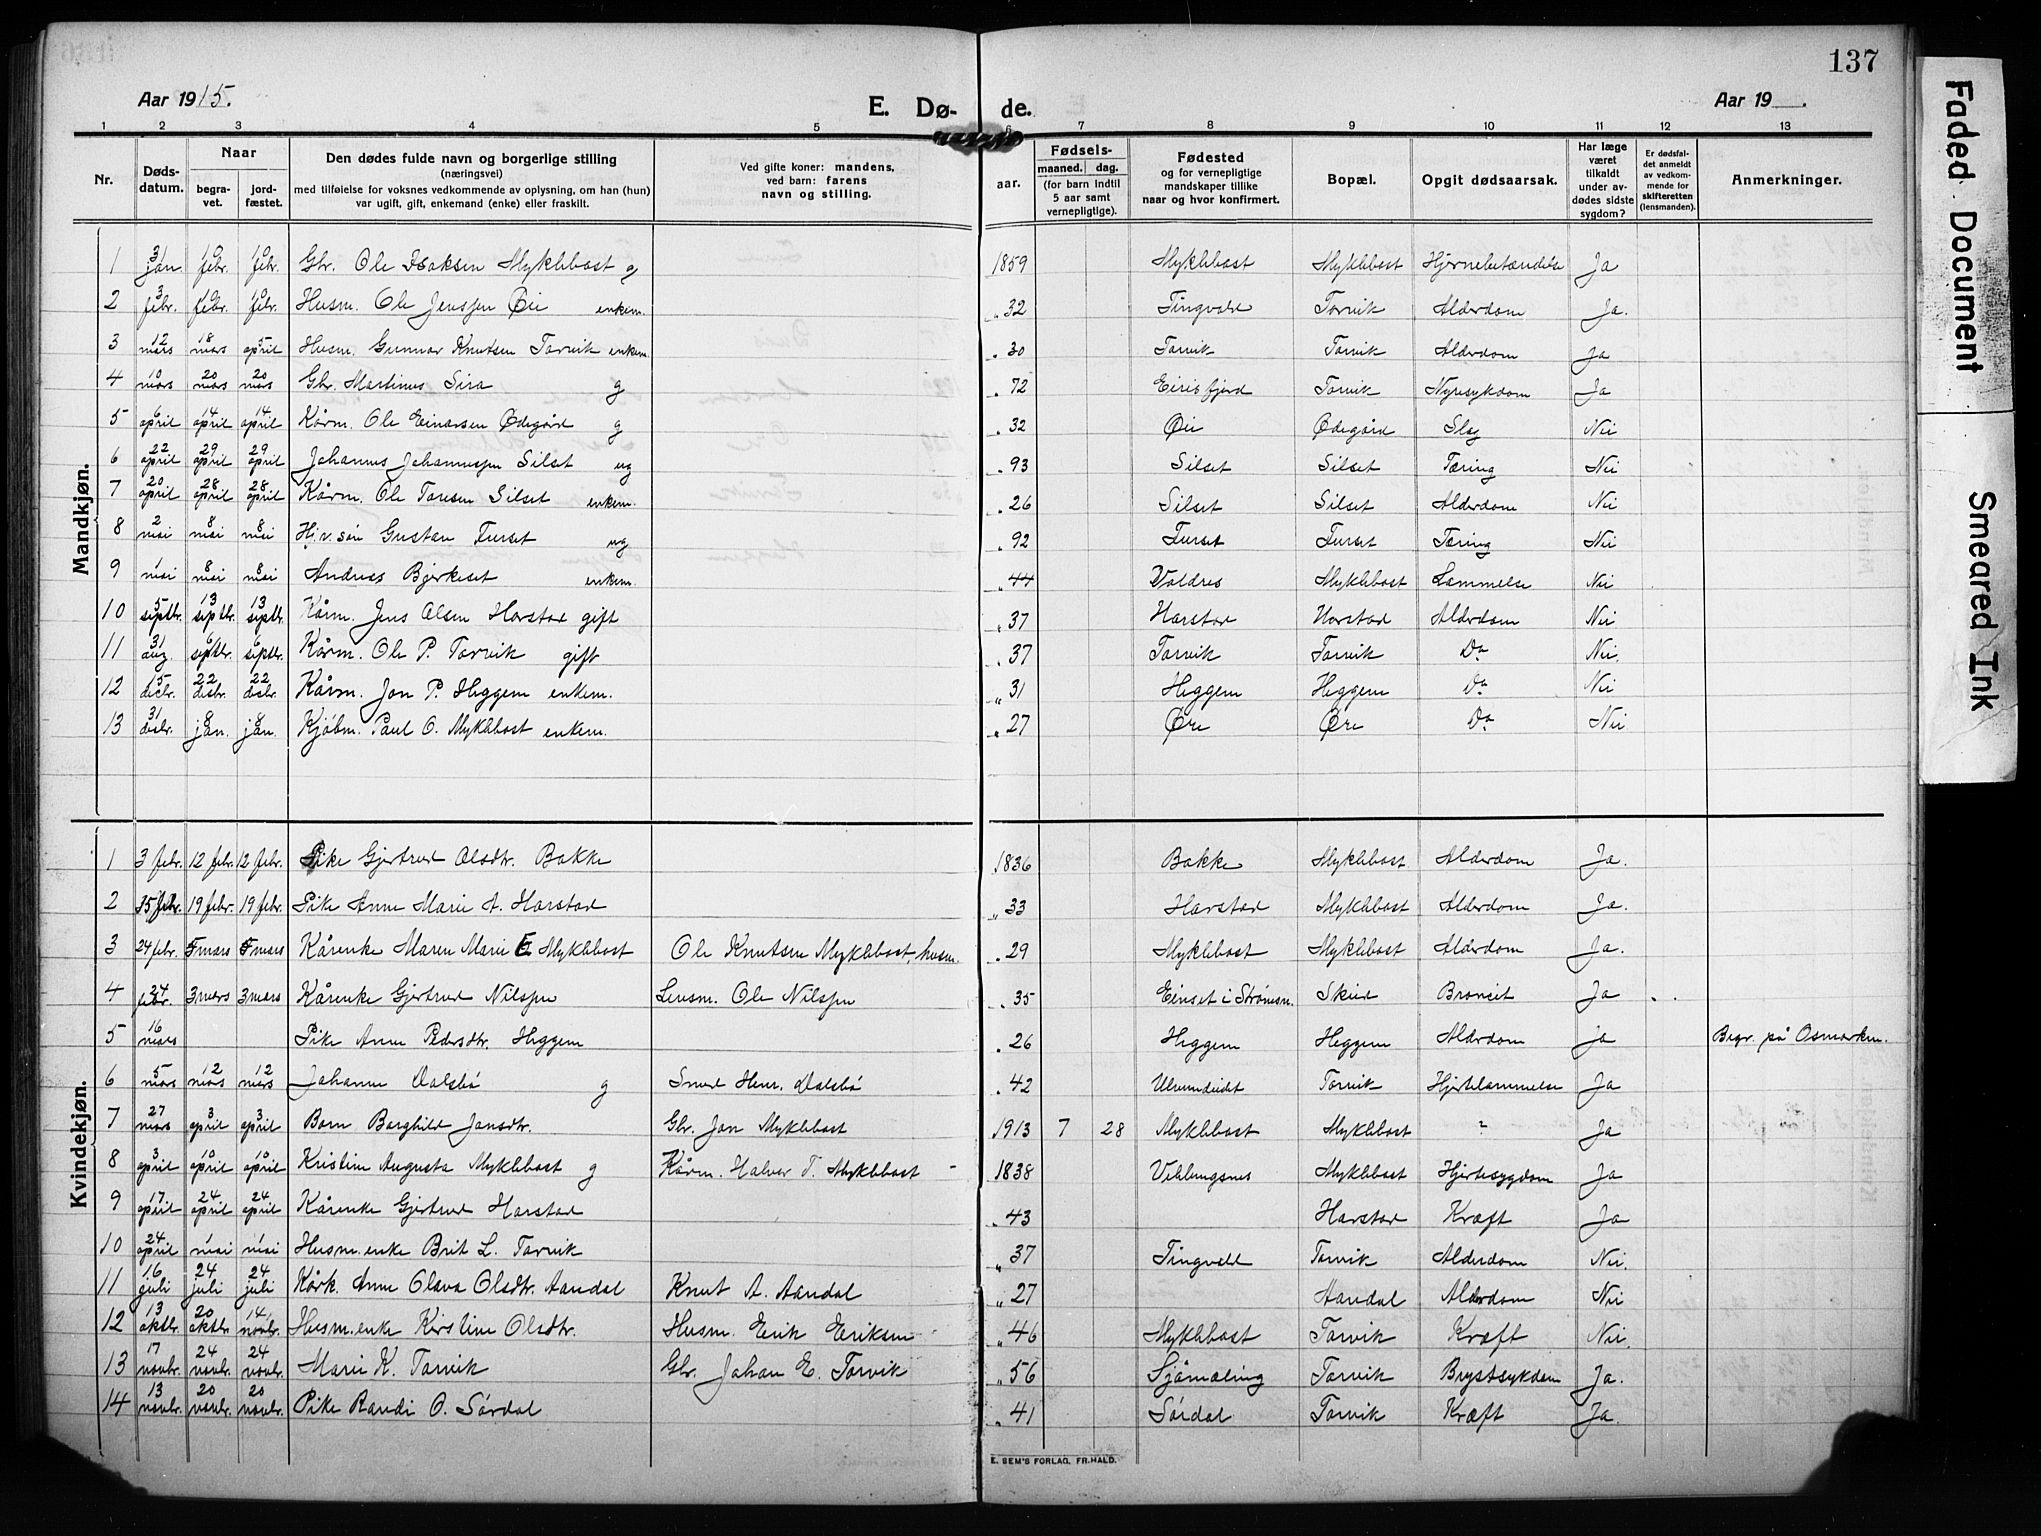 137
Aar 1915.
E. Dø- de.
Aar 19__.
1 2 3 4 5 6 7 8 9 10 11 12 13
Nr.
Døds-datum.
Naar
begra-vet.
jord-fæstet.
Den dødes fulde navn og borgerlige stilling
(næringsvei)
med tilføielse for voksnes vedkommende av oplysning, om han (hun)
var ugift, gift, enkemand (enke) eller fraskilt.
Ved gifte koner: mandens,
ved barn: farens
navn og stilling.
Fødsels-
aar.
maaned. dag.
(for barn indtil
5 aar samt
vernepligtige).
Fødested
og for vernepligtige
mandskaper tillike
naar og hvor konfirmert.
Bopæl.
Opgit dødsaarsak.
Har læge
været
tilkaldt
under av-
dødes sidste
sygdom?
Er dødsfal-
det anmeldt
av vedkom-
mende for
skifteretten
(lensmanden).
Anmerkninger.
Mandkjøn.
1 31 jan. 10 febr. 10 febr. Gbr. Ole Isaksen Myklebost g 1859 Myklebost Myklebost Hjernebetændelse Ja
2 3 febr. 10 febr. 10 febr. Husm. Ole Jenssen Øie enkem. " 32 Tingvold Torvik Alderdom Ja.
3 12 mars 18 mars 5 april Husm. Gunnar Knutsen Torvik enkem. " 30 Torvik Torvik Alderdom Ja
4 10 mars 20 mars 20 mars Gbr. Martinus Sira g " 72 Eirisfjord Torvik Nyresykdom Ja
5 6 april 14 april 14 april Kårm. Ole Einarsen Ødegård g " 32 Øie Ødegård Slag Nei
6 22 april 29 april 29 april Johannes Johannessen Silset ug " 93 Silset Silset Tæring Nei
7 20 april 28 april 28 april Kårm. Ole Toresen Silset enkem. " 26 Silset Silset Alderdom Nei
8 2 mai 8 mai 8 mai Hj.v. søn Gustav Furset ug " 92 Furset Furset Tæring Nei
9 1 mai 8 mai 8 mai Andreas Bjerkeset enkem. " 44 Valdres Myklebost Lammelse Nei
10 5 septbr. 13 septbr. 13 septbr. Kårm. Jens Olsen Horstad gift " 37 Harstad Horstad Alderdom Nei
11 31 aug. 6 septbr. 6 septbr. Kårm. Ole P. Torvik gift " 37 Torvik Torvik Do Nei.
12 15 desbr. 22 desbr. 22 desbr. Kårm. Jon P. Heggem enkem. " 31 Heggem Heggem Do Nei
13 31 desbr. 8 jan. 8 jan. Kjøbm. Paul O. Myklebost enkem. " 27 Øre Øre Do Nei
Kvindekjøn.
1 3 febr. 12 febr. 12 febr. Pike Gjertrud Olsdtr. Bakke 1836 Bakke Myklebost Alderdom Ja.
2 15 febr. 19 febr. 19 febr. Pike Anne Marie A. Harstad " 33 Harstad Myklebost Alderdom Ja.
3 24 febr. 5 mars 5 mars Kårenke Maren Marie E Myklebost Ole Knutsen Myklebost, husm. " 29 Myklebost Myklebost Alderdom Ja.
4 24 febr. 3 mars 3 mars Kårenke Gjertrud Nilssen Lensm. Ole Nilssen " 35 Einset i Strømsn. Skeid Bronkit Ja
5 16 mars Pike Anne Pedersdtr. Heggem " 26 Heggem Heggem Alderdom ja Begr. på Osmarken.
6 5 mars 12 mars 12 mars Johanne Dalsbø g Smed Henr. Dalsbø " 42 Ulvundeidet Torvik Hjertelammelse Ja
7 27 mars 3 april 3 april Barn Borghild Jonsdtr. Gbr. Jon Myklebost 1913 7 28 Myklebost Myklebost ? Ja
8 3 april 10 april 10 april Kristine Augusta Myklebost g Kårm. Halvor T. Myklebost 1838 Veblungsnes Myklebost Hjertesygdom Ja
9 17 april 24 april 24 april Kårenke Gjertrud Harstad " 43 Harstad Kræft Ja
10 24 april 1 mai 1 mai Husm.enke Brit L. Torvik " 37 Tingvold Torvik Alderdom Nei.
11 16 juli 24 juli 24 juli Kårk. Anne Olava Olsdtr. Aandal Knut A. Aandal " 27 Aandal Alderdom Nei
12 13 oktbr. 20 oktbr. 14 novbr. Husm.enke Kirstine Olsdtr. Husm. Erik Eriksen " 46 Myklebost Torvik Kræft Nei.
13 17 novbr. 24 novbr. 24 novbr. Marie K. Torvik Gbr. Johan E. Torvik " 56 Sjømæling Torvik Brystsykdom Ja.
14 13 novbr. 20 novbr. 20 novbr. Pike Randi O. Sørdal " 41 Sørdal Torvik Kræft Ja.
E. SEM'S FORLAG, FR.HALD.
Faded Document
Smeared Ink